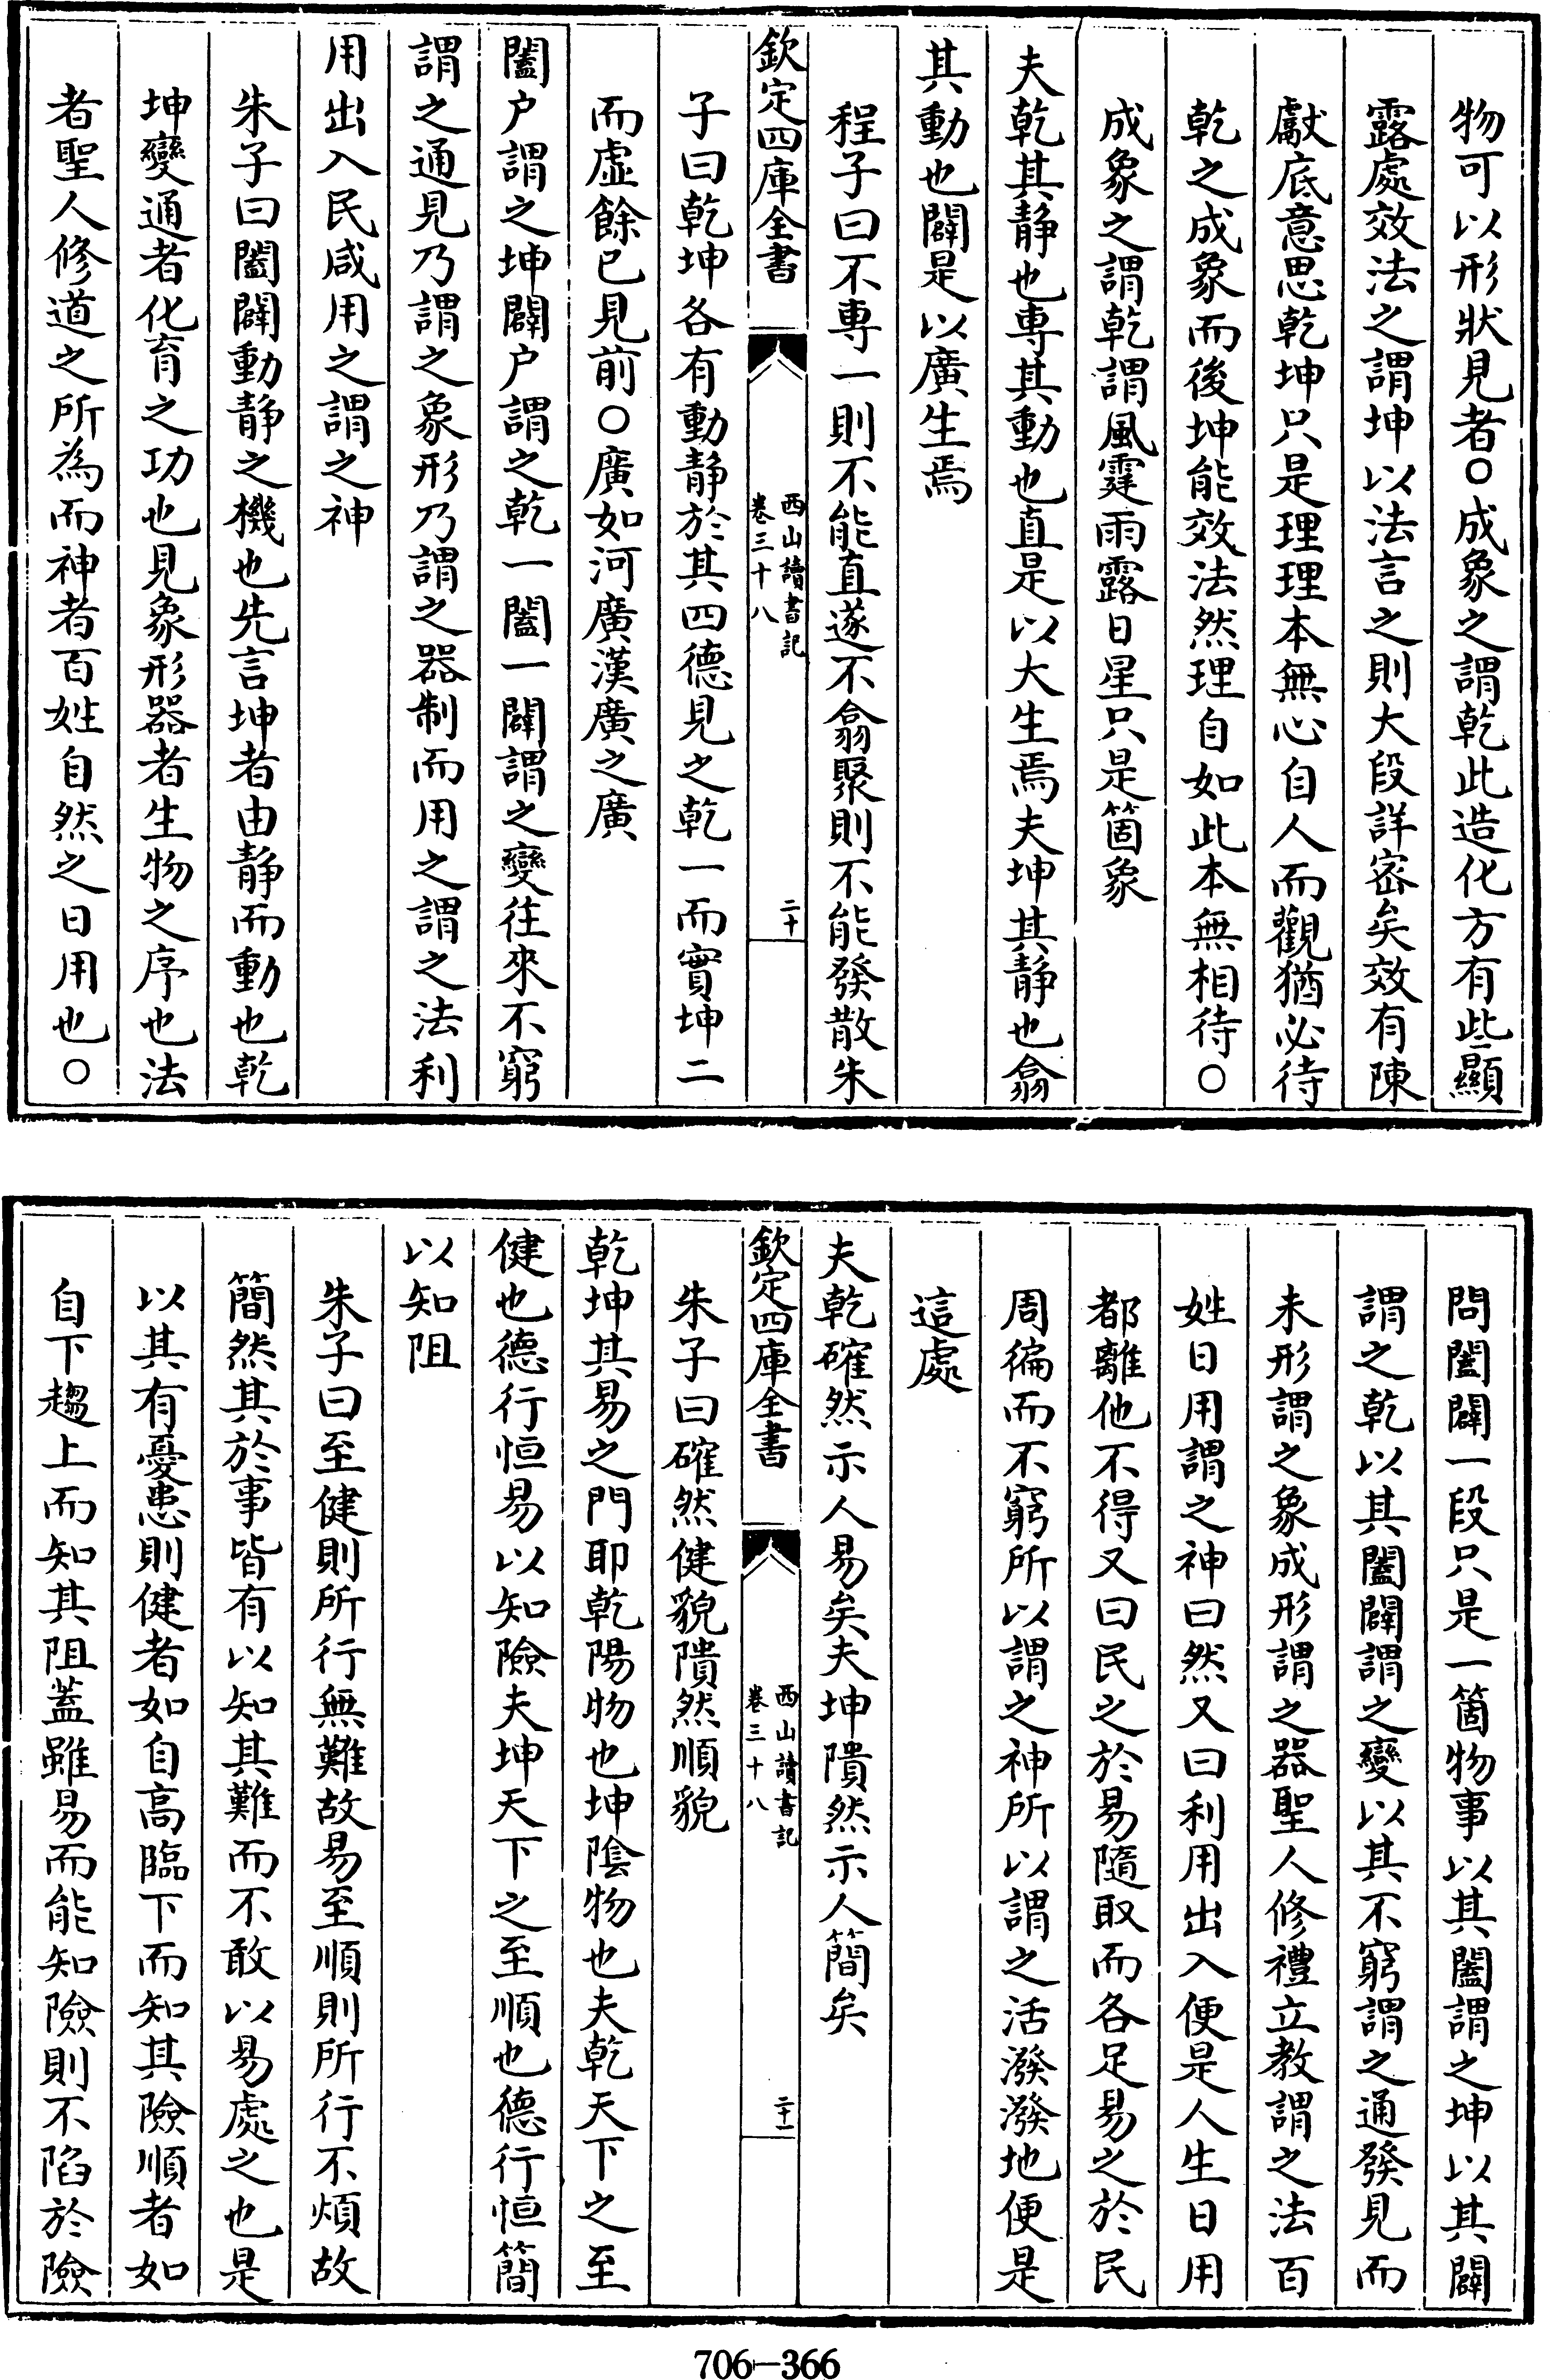 物可以形狀見者○成象之謂乾此造化方有些顯
露處效法之謂坤以法言之則大段詳密矣效有陳
獻底意思乾坤只是理理本無心自人而觀猶必待
乾之成象而後坤能效法然理自如此本無相待○
成象之謂乾謂風霆雨露日星只是箇象
夫乾其靜也專其動也直是以大生焉夫坤其靜也翕
其動也闢是以廣生焉
程子曰不專一則不能直遂不翕聚則不能發散朱
欽定四庫全書
西山讀書記
卷三十八
二十
子曰乾坤各有動靜於其四德見之乾一而實坤二
而虛餘已見前○廣如河廣漢廣之廣
闔户謂之坤闢户謂之乾一闔一闢謂之變往來不窮
謂之通見乃謂之象形乃謂之器制而用之謂之法利
用出入民咸用之謂之神
朱子曰闔闢動靜之機也先言坤者由靜而動也乾
坤變通者化育之功也見象形器者生物之序也法
者聖人修道之所為而神者百姓自然之日用也○
問闔闢一段只是一箇物事以其闔謂之坤以其闢
謂之乾以其闔闢謂之變以其不窮謂之通發見而
未形謂之象成形謂之器聖人修禮立教謂之法百
姓日用謂之神曰然又曰利用出入便是人生日用
都離他不得又曰民之於易隨取而各足易之於民
周徧而不窮所以謂之神所以謂之活潑潑地便是
這處
夫乾確然示人易矣夫坤隤然示人簡矣
欽定四庫全書
西山讀書記
卷三十八
二十一
朱子曰確然健貌隤然順貌
乾坤其易之門耶乾陽物也坤陰物也夫乾天下之至
健也德行恒易以知險夫坤天下之至順也德行恒簡
以知阻
朱子曰至健則所行無難故易至順則所行不煩故
簡然其於事皆有以知其難而不敢以易處之也是
以其有憂患則健者如自高臨下而知其險順者如
自下趨上而知其阻蓋雖易而能知險則不陷於險
706—366